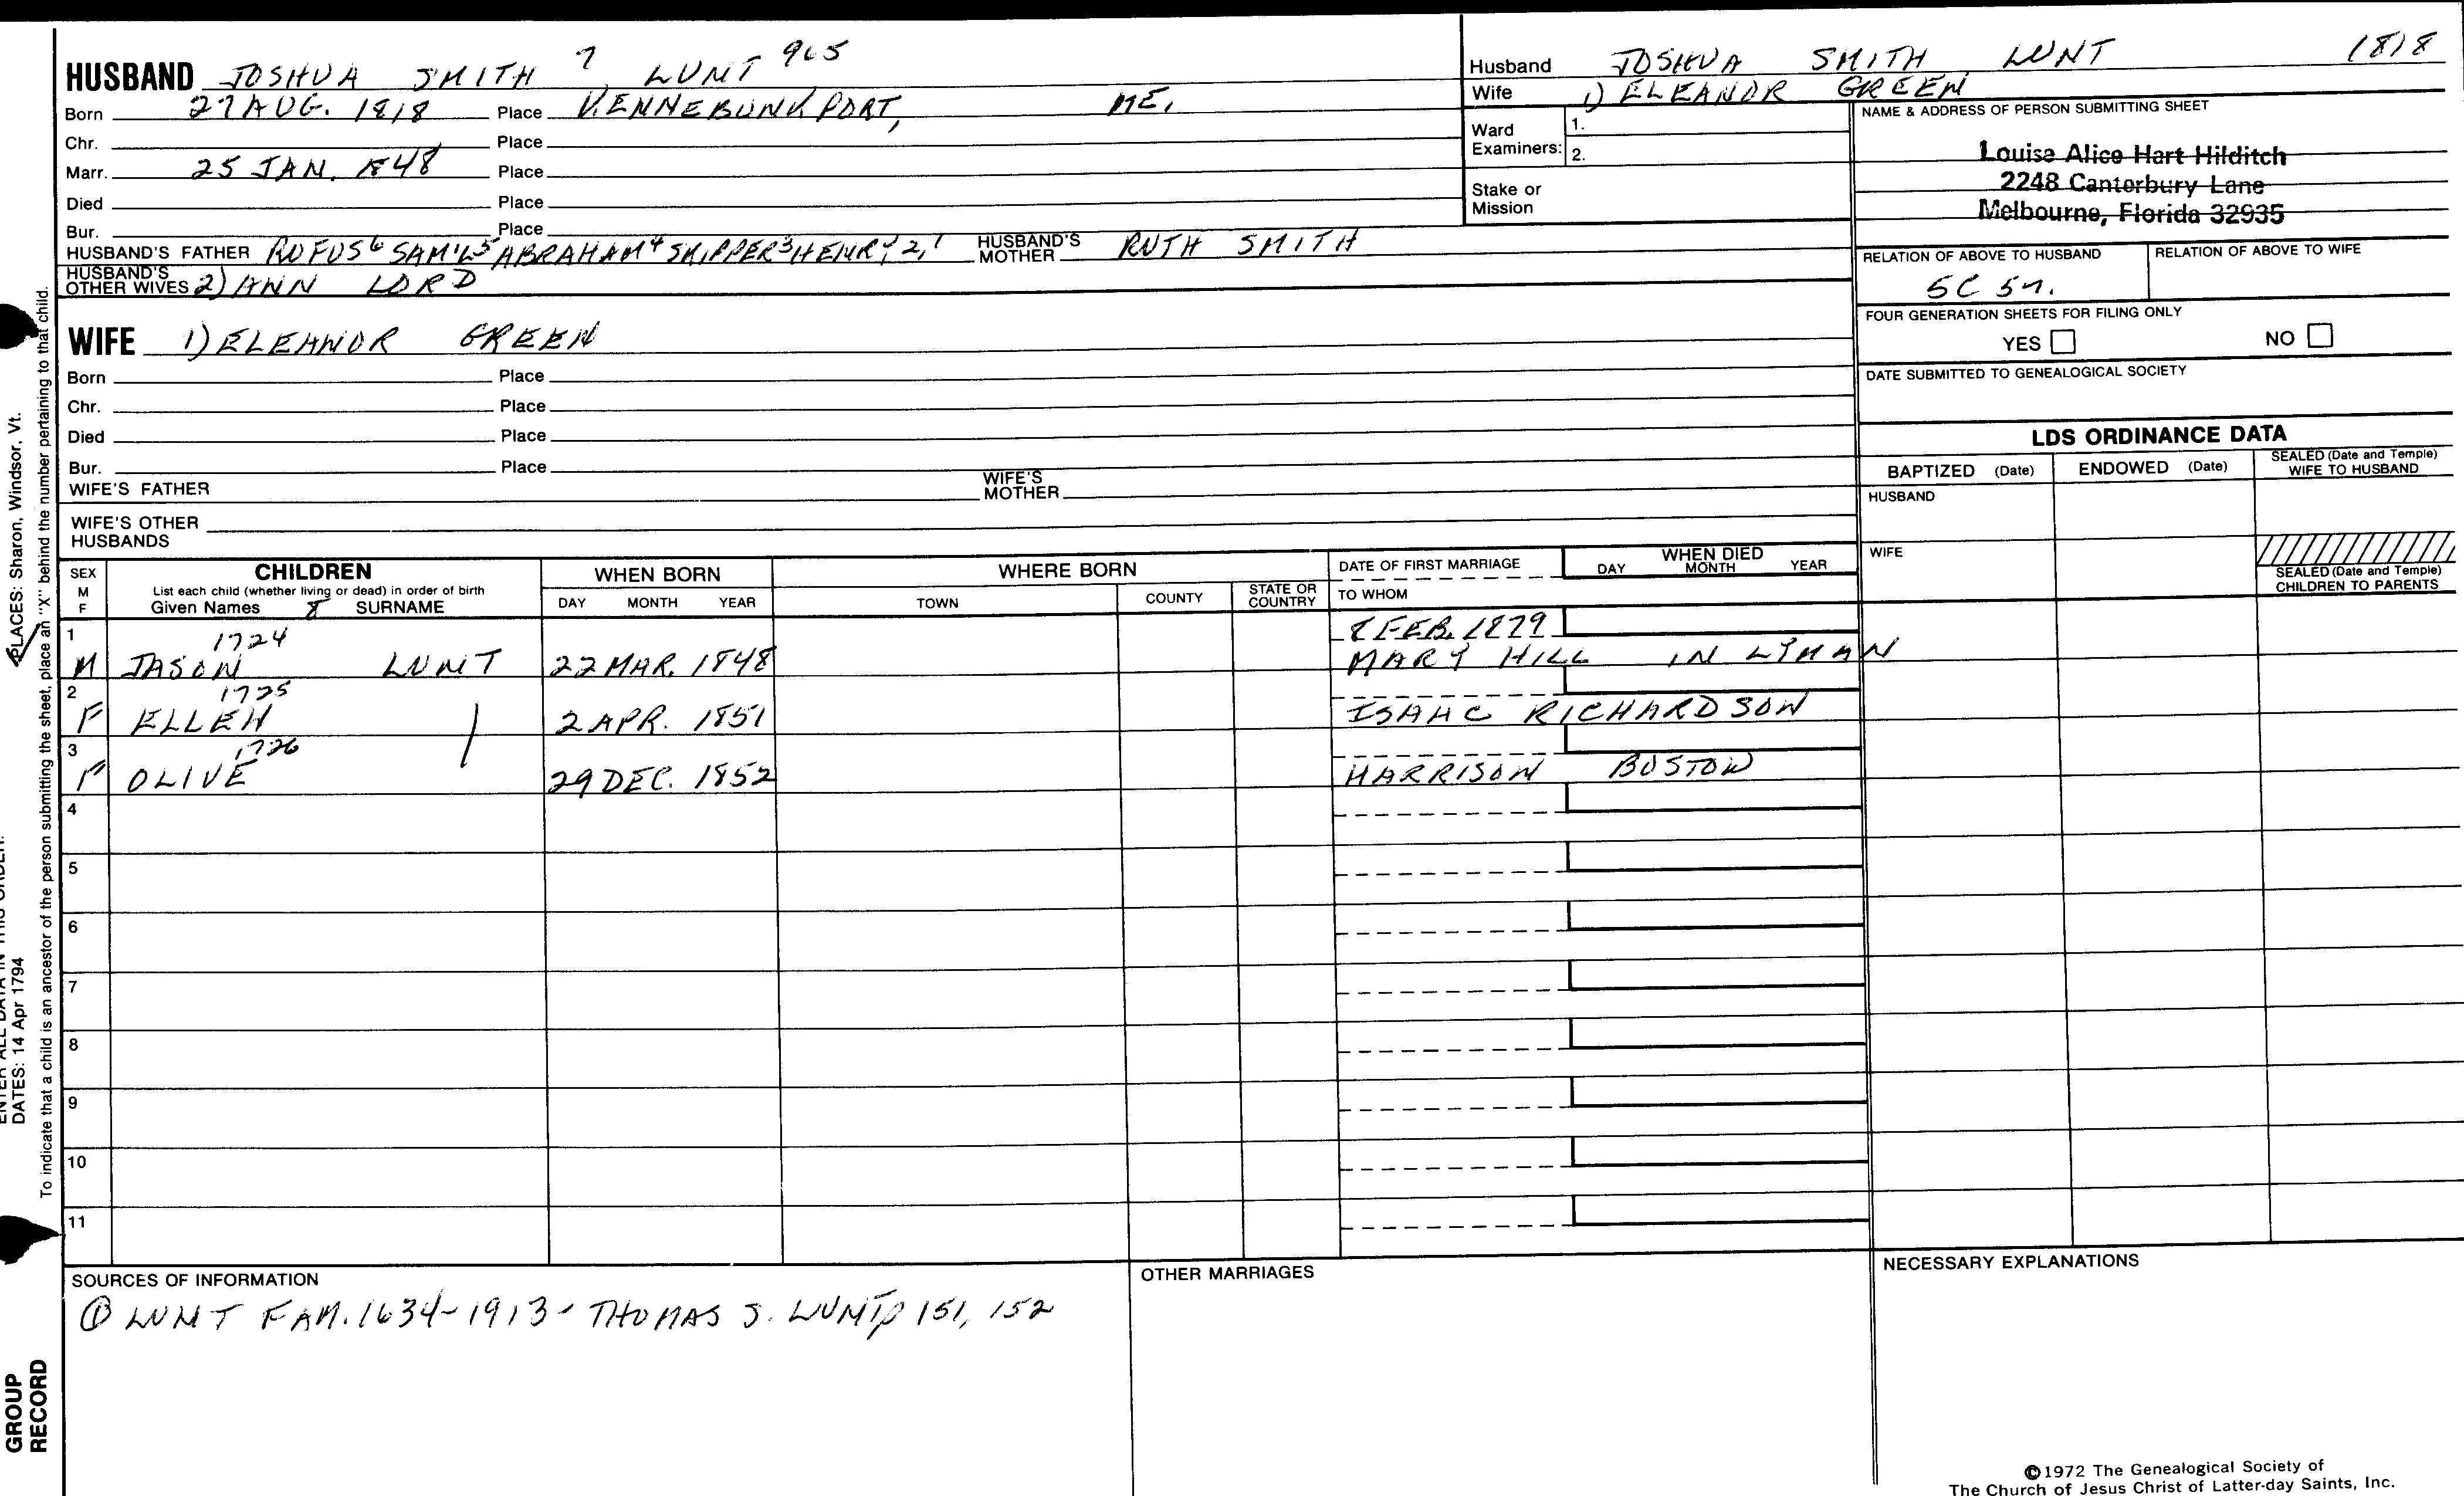 HUSBAND JOSHUA SMITH 7 LUNT 965
Born 27 AUG. 1818 Place KENNEBUNKPORT, ME.
Chr. Place
Marr. 25 JAN. 1848 Place
Died Place
Bur. Place
HUSBAND'S FATHER RUFUS6 SAM'L5 ABRAHAM4 SKIPPER3 HENRY2,1 HUSBAND'S MOTHER RUTH SMITH
HUSBAND'S OTHER WIVES 2) ANN LORD
WIFE 1) ELEANOR GREEN
Born Place
Chr. Place
Died Place
Bur. Place
WIFE'S FATHER WIFE'S MOTHER
WIFE'S OTHER HUSBANDS
Husband JOSHUA SMITH LUNT 1818
Wife 1) ELEANOR GREEN
Ward Examiners: 1.
2.
Stake or Mission
NAME & ADDRESS OF PERSON SUBMITTING SHEET
Louise Alice Hart Hilditch
2248 Canterbury Lane
Melbourne, Florida 32935
RELATION OF ABOVE TO HUSBAND RELATION OF ABOVE TO WIFE
5C 5r.
FOUR GENERATION SHEETS FOR FILING ONLY
YES NO
DATE SUBMITTED TO GENEALOGICAL SOCIETY
LDS ORDINANCE DATA
BAPTIZED (Date) ENDOWED (Date) SEALED (Date and Temple) WIFE TO HUSBAND
HUSBAND
WIFE
SEALED (Date and Temple) CHILDREN TO PARENTS
SEX M F
CHILDREN
List each child (whether living or dead) in order of birth
Given Names 8 SURNAME
WHEN BORN
DAY MONTH YEAR
WHERE BORN
TOWN COUNTY STATE OR COUNTRY
DATE OF FIRST MARRIAGE
TO WHOM
WHEN DIED
DAY MONTH YEAR
1 1724 8 FEB. 1879
M JASON LUNT 22 MAR. 1848 MARY HILL IN LYMAN
2 1725
F ELLEN 2 APR. 1851 ISAAC RICHARDSON
3 1726
F OLIVE 29 DEC. 1852 HARRISON BOSTON
4
5
6
7
8
9
10
11
SOURCES OF INFORMATION
① LUNT FAM. 1634-1913 - THOMAS S. LUNT p 151, 152
OTHER MARRIAGES
NECESSARY EXPLANATIONS
©1972 The Genealogical Society of
The Church of Jesus Christ of Latter-day Saints, Inc.
To indicate that a child is an ancestor of the person submitting the sheet, place an "X" behind the number pertaining to that child.
PLACES: Sharon, Windsor, Vt.
DATES: 14 Apr 1794
GROUP
RECORD